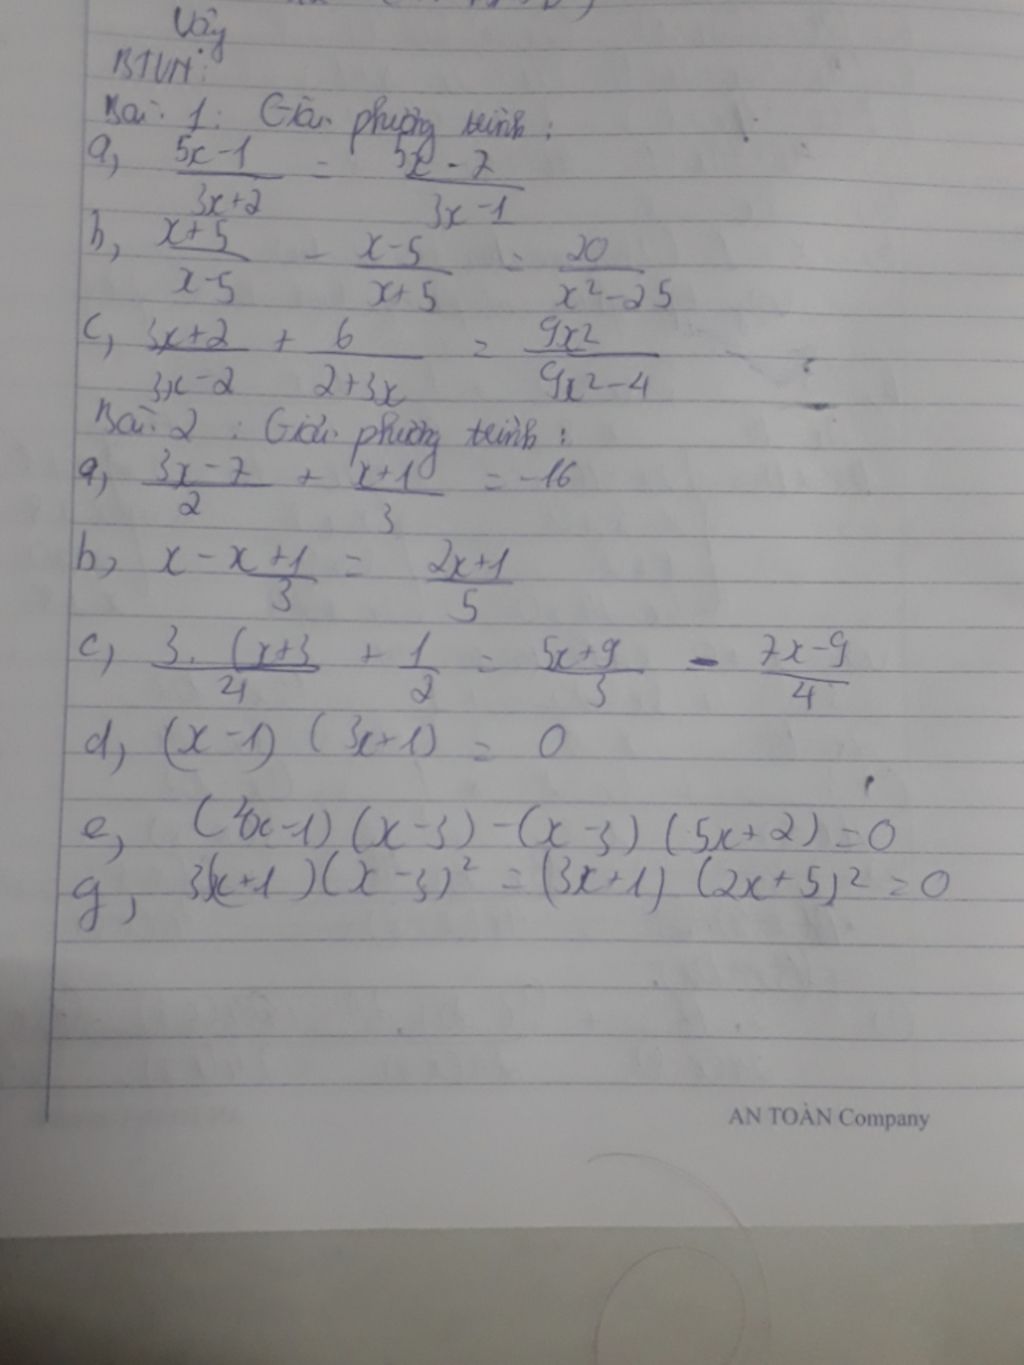 Vậy
BTVN:
Bài 1: Giải phương trình:
a, (5x-1)/(3x+2) = (5x-7)/(3x-1)
b, (x+5)/(x-5) - (x-5)/(x+5) = 20/(x²-25)
c, (3x+2)/(3x-2) + 6/(2+3x) = 9x²/(9x²-4)
Bài 2: Giải phương trình:
a, (3x-7)/2 + (x+1)/3 = -16
b, x - (x+1)/3 = (2x+1)/5
c, 3.(x+3/4 + 1/2 = (5x+9)/3 - (7x-9)/4
d, (x-1) (3x+1) = 0
e, (x-1) (x-3) - (x-3) (5x+2) = 0
g, 3(x+1) (x-3)² = (3x+1) (2x+5)² = 0
AN TOÀN Company